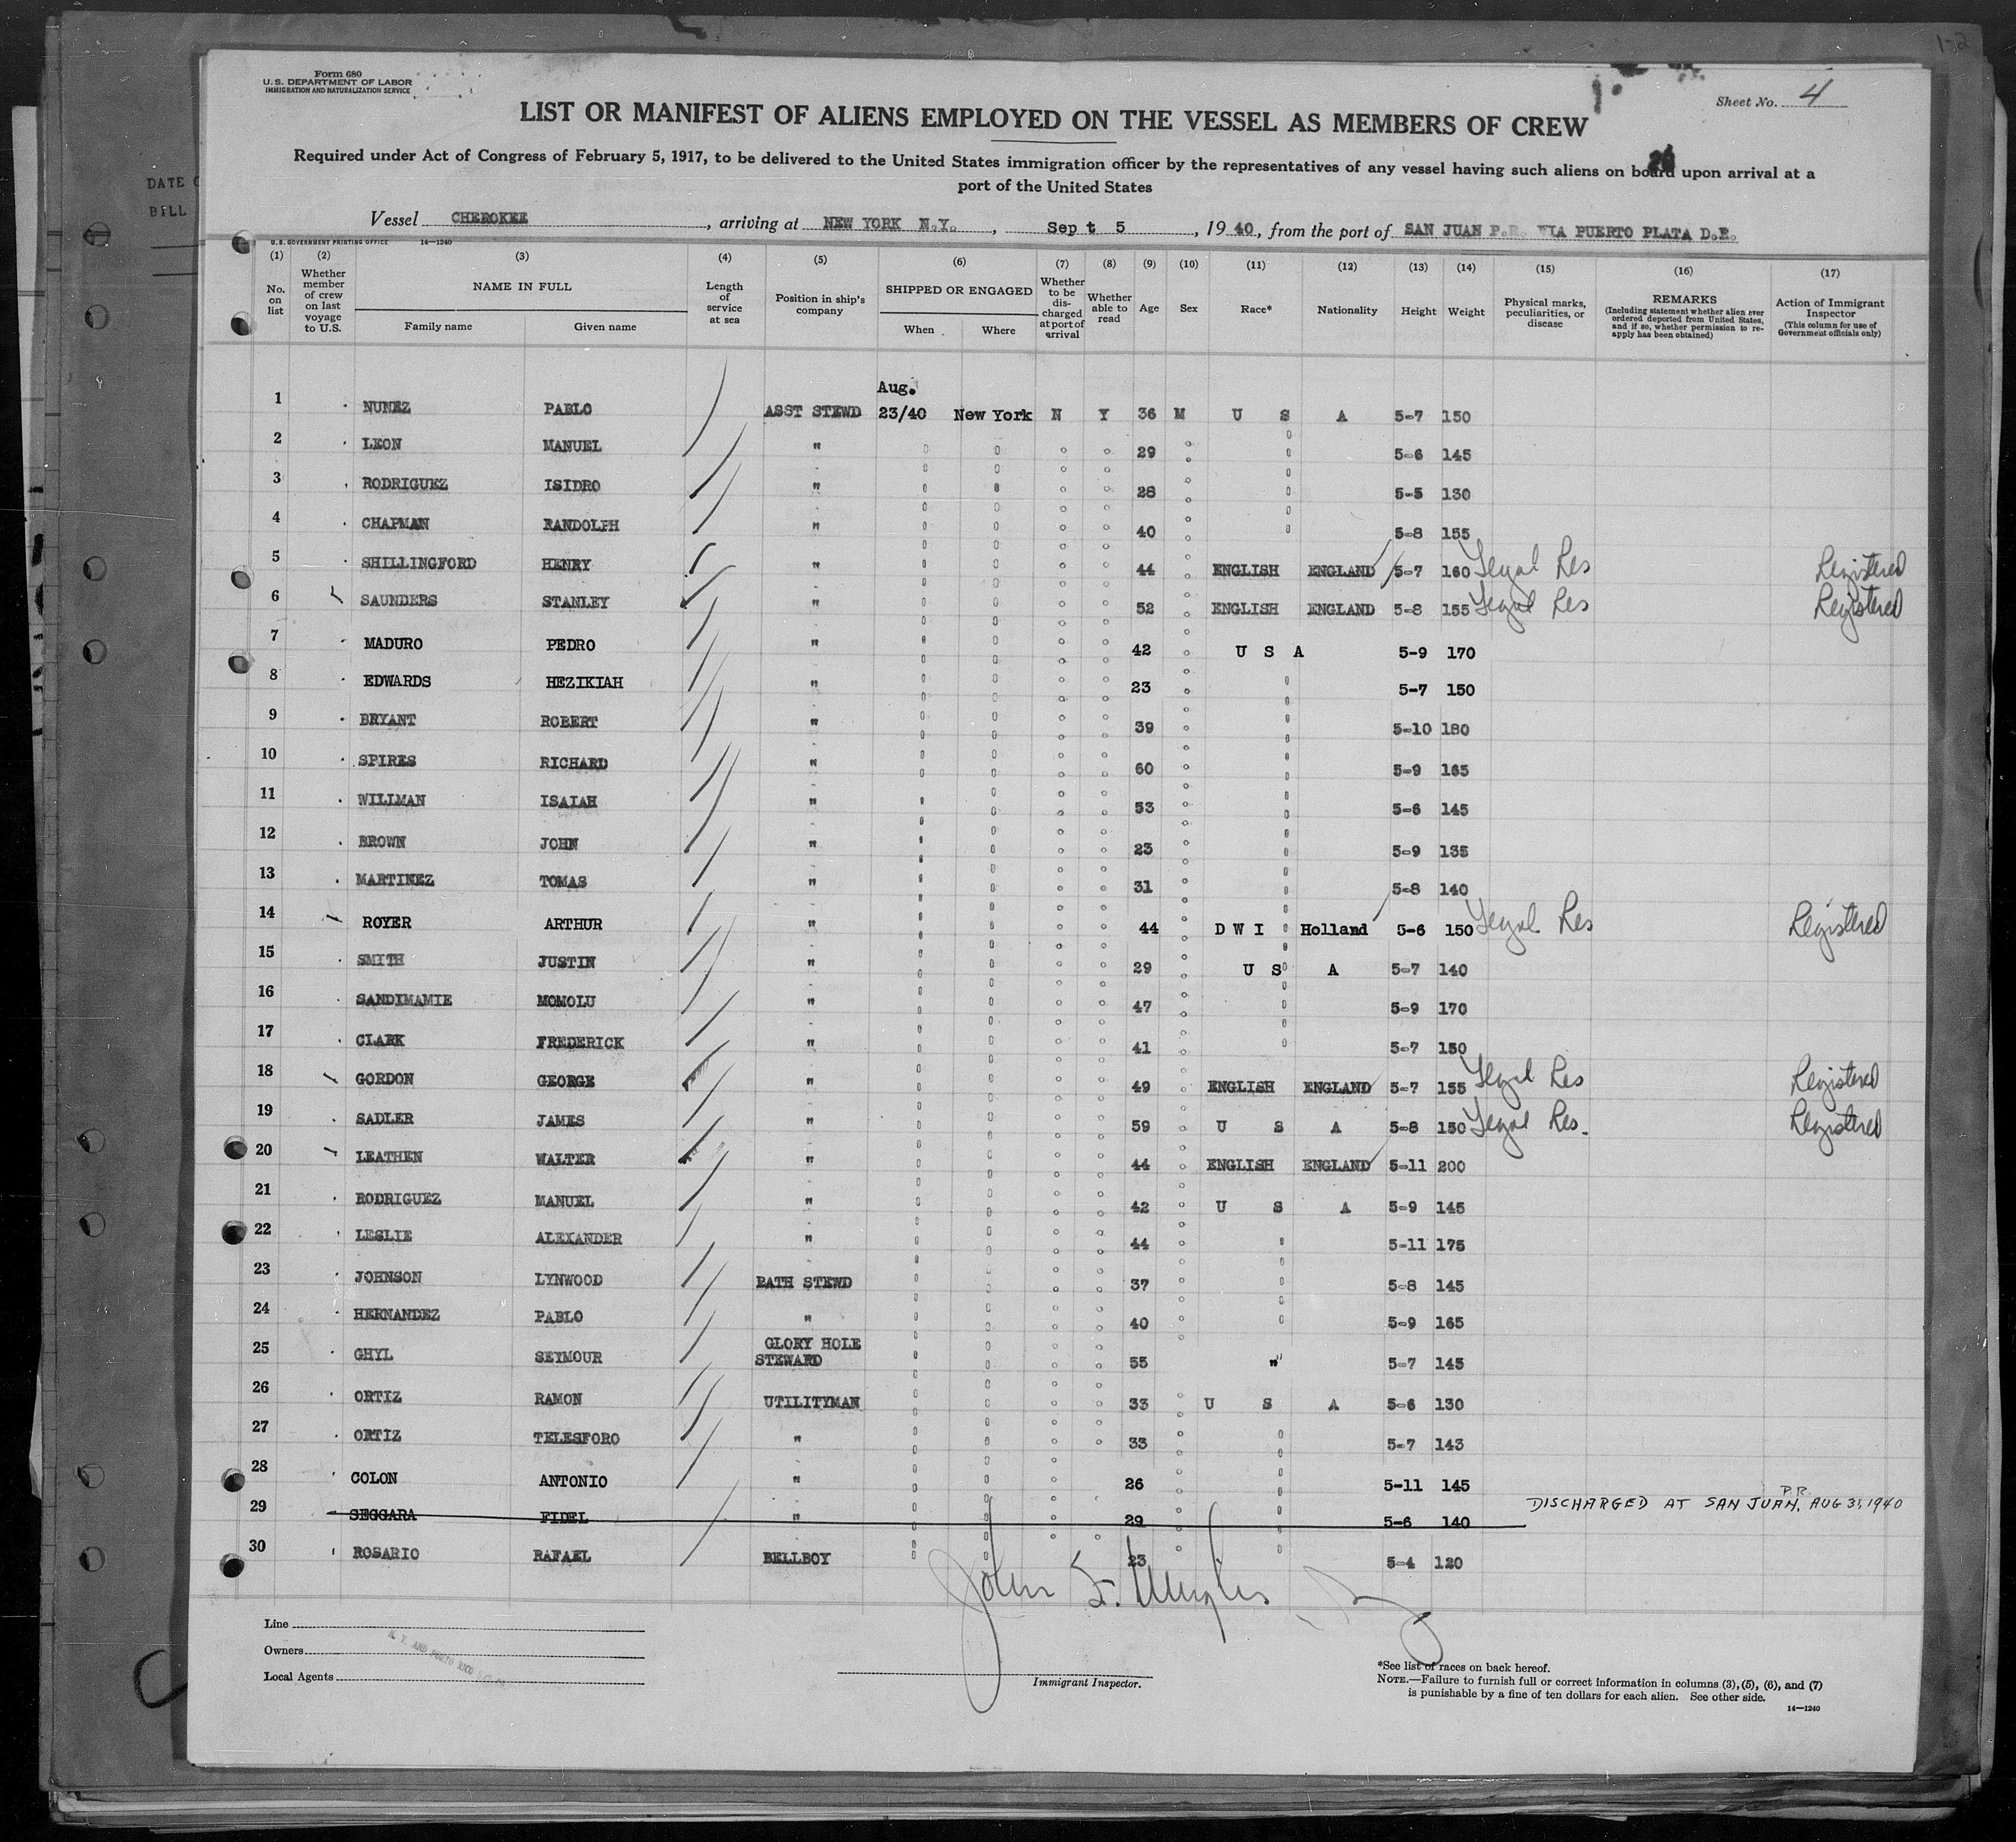 1-2
Form 680
U.S. DEPARTMENT OF LABOR
IMMIGRATION AND NATURALIZATION SERVICE
Sheet No. 4
LIST OR MANIFEST OF ALIENS EMPLOYED ON THE VESSEL AS MEMBERS OF CREW
Required under Act of Congress of February 5, 1917, to be delivered to the United States immigration officer by the representatives of any vessel having such aliens on board upon arrival at a
port of the United States
DATE
BILL
Vessel CHEROKEE, arriving at NEW YORK N.Y., Sept 5, 1940, from the port of SAN JUAN P.R. VIA PUERTO PLATA D.R.
U.S. GOVERNMENT PRINTING OFFICE 14—1240
(1) (2) (3) (4) (5) (6) (7) (8) (9) (10) (11) (12) (13) (14) (15) (16) (17)
No. on list
Whether member of crew on last voyage to U.S.
NAME IN FULL
Family name Given name
Length of service at sea
Position in ship's company
SHIPPED OR ENGAGED
When Where
Whether to be discharged at port of arrival
Whether able to read
Age Sex Race* Nationality Height Weight
Physical marks, peculiarities, or disease
REMARKS
(Including statement whether alien ever ordered deported from United States, and if so, whether permission to reapply has been obtained)
Action of Immigrant Inspector
(This column for use of Government officials only)
Aug.
1 NUNEZ PABLO ASST STEWD 23/40 New York N Y 36 M U S A 5-7 150
2 LEON MANUEL " 29 5-6 145
3 RODRIGUEZ ISIDRO " 28 5-5 130
4 CHAPMAN RANDOLPH " 40 5-8 155
5 SHILLINGFORD HENRY " 44 ENGLISH ENGLAND 5-7 160 Legal Res Registered
6 SAUNDERS STANLEY " 52 ENGLISH ENGLAND 5-8 155 Legal Res Registered
7 MADURO PEDRO " 42 U S A 5-9 170
8 EDWARDS HEZIKIAH " 23 5-7 150
9 BRYANT ROBERT " 39 5-10 180
10 SPIRES RICHARD " 60 5-9 165
11 WILLMAN ISAIAH " 53 5-6 145
12 BROWN JOHN " 23 5-9 135
13 MARTINEZ TOMAS " 31 5-8 140
14 ROYER ARTHUR " 44 D W I Holland 5-6 150 Legal Res Registered
15 SMITH JUSTIN " 29 U S A 5-7 140
16 SANDIMAMIE MOMOLU " 47 5-9 170
17 CLARK FREDERICK " 41 5-7 150
18 GORDON GEORGE " 49 ENGLISH ENGLAND 5-7 155 Legal Res Registered
19 SADLER JAMES " 59 U S A 5-8 150 Legal Res. Registered
20 LEATHEN WALTER " 44 ENGLISH ENGLAND 5-11 200
21 RODRIGUEZ MANUEL " 42 U S A 5-9 145
22 LESLIE ALEXANDER " 44 5-11 175
23 JOHNSON LYNWOOD BATH STEWD 37 5-8 145
24 HERNANDEZ PABLO " 40 5-9 165
25 GHYL SEYMOUR GLORY HOLE STEWARD 55 " 5-7 145
26 ORTIZ RAMON UTILITYMAN 33 U S A 5-6 130
27 ORTIZ TELESFORO " 33 5-7 143
28 COLON ANTONIO " 26 5-11 145
29 SEGGARA FIDEL " 29 5-6 140 DISCHARGED AT SAN JUAN, P.R. AUG 31, 1940
30 ROSARIO RAFAEL BELLBOY 23 5-4 120
John
Line
Owners N. Y. AND PORTO RICO
Local Agents
Immigrant Inspector.
*See list of races on back hereof.
NOTE.—Failure to furnish full or correct information in columns (3), (5), (6), and (7)
is punishable by a fine of ten dollars for each alien. See other side.
14—1240